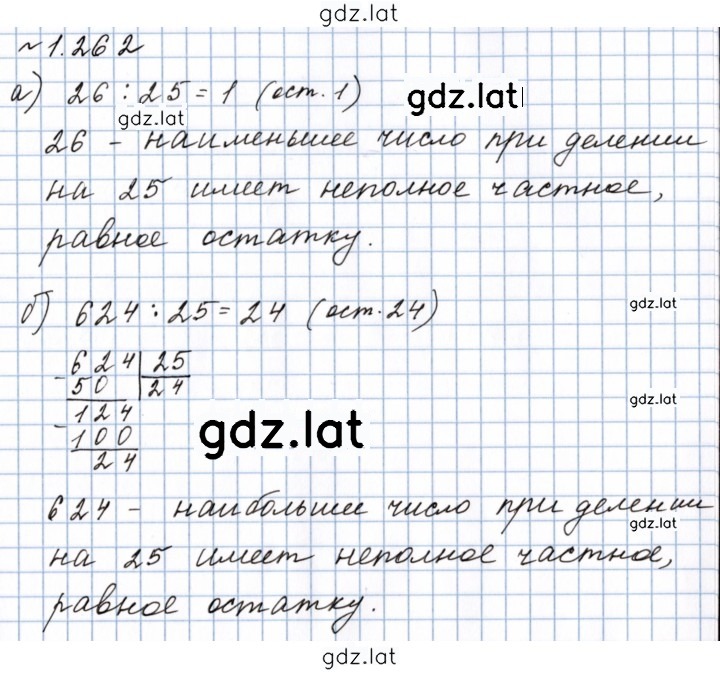 gdz.lat
~ 1.262
а) 26 : 25 = 1 (ост. 1) gdz.lat
gdz.lat
26 - наименьшее число при делении
на 25 имеет неполное частное,
равное остатку.
б) 624 : 25 = 24 (ост. 24) gdz.lat
- 624 | 25
50 | 24
gdz.lat
- 124
100
gdz.lat
24
624 - наибольшее число при делении
gdz.lat
на 25 имеет неполное частное,
равное остатку.
gdz.lat